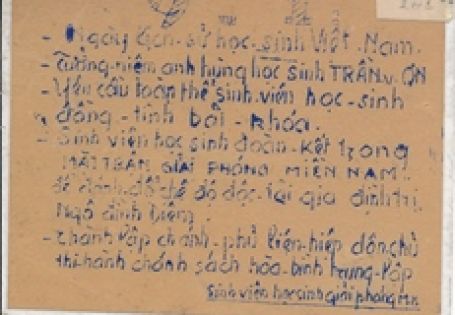 - Ngày lịch-sử học-sinh Việt-Nam.
- Tưởng-niệm anh hùng học sinh TRẦN.V.ƠN
- Yêu cầu toàn thể sinh.viên học-sinh
đồng-tình bãi-khóa.
- Sinh viên học sinh đoàn-kết trong
"MẶT TRẬN GIẢI PHÓNG MIỀN NAM"
để đánh đổ chế độ độc-tài gia đình trị
Ngô đình Diệm
- thành lập chánh-phủ liên-hiệp dân chủ
thi hành chánh sách hòa-bình trung-lập
Sinh viên học sinh giải phóng